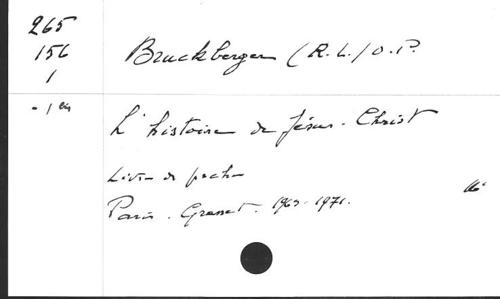 265
156
1
Bruckberger (R. L.) O.P.
- 1 ex
L'histoire de Jésus-Christ
Livre de poche
Paris. Grasset. 1965-1971.